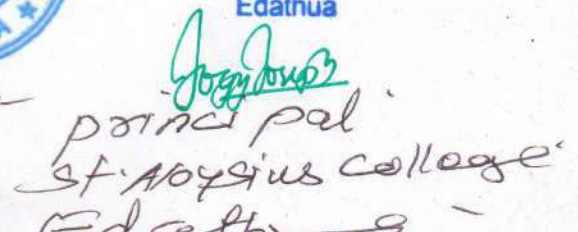 Edathua
principal
St. Aloysius College
Edathua